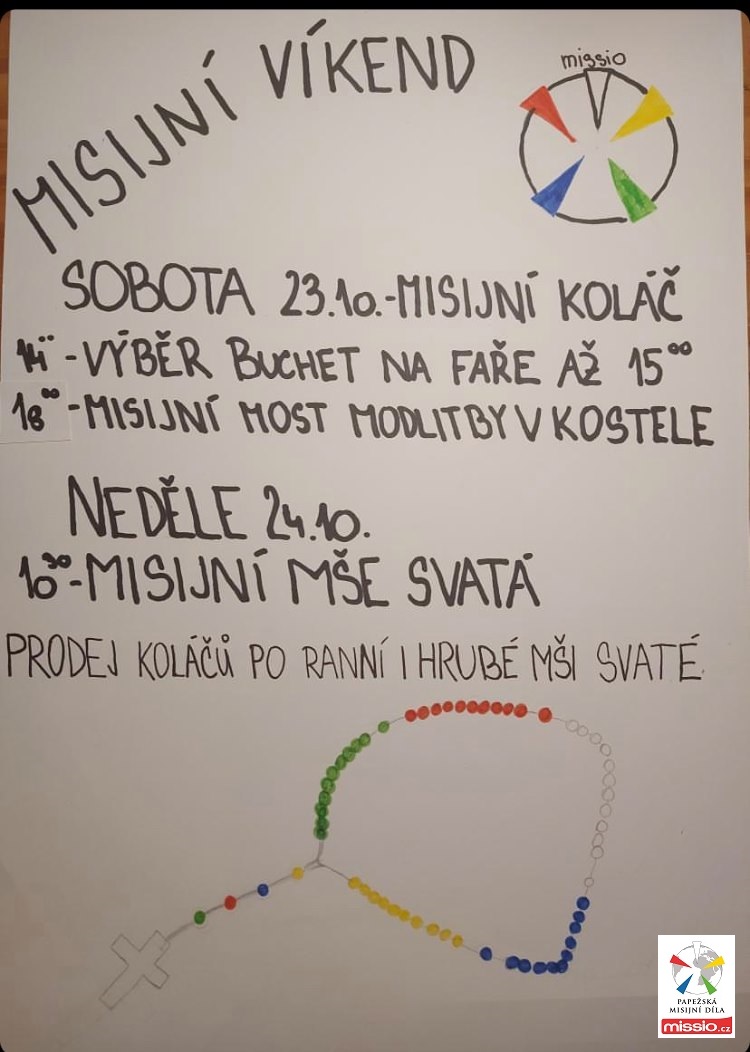 MISIJNÍ VÍKEND
missio
SOBOTA 23.10.-MISIJNÍ KOLÁČ
14⁰⁰-VÝBĚR BUCHET NA FAŘE AŽ 15⁰⁰
18⁰⁰-MISIJNÍ MOST MODLITBY V KOSTELE
NEDĚLE 24.10.
10³⁰-MISIJNÍ MŠE SVATÁ
PRODEJ KOLÁČŮ PO RANNÍ I HRUBÉ MŠI SVATÉ.
PAPEŽSKÁ
MISIJNÍ DÍLA
missio.cz